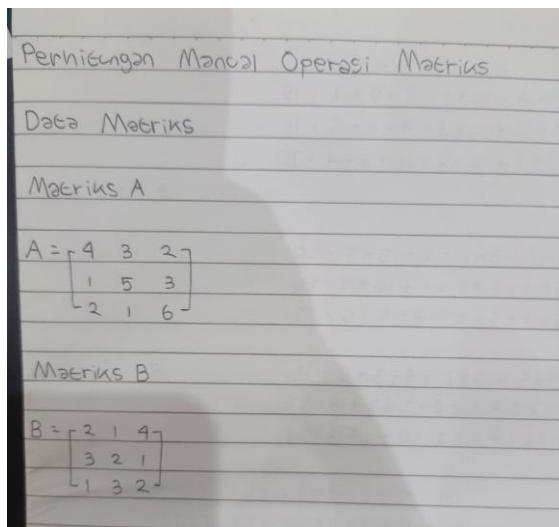 Perhitungan Manual Operasi Matriks
Data Matriks
Matriks A
A = [ 4 3 2
1 5 3
2 1 6 ]
Matriks B
B = [ 2 1 4
3 2 1
1 3 2 ]